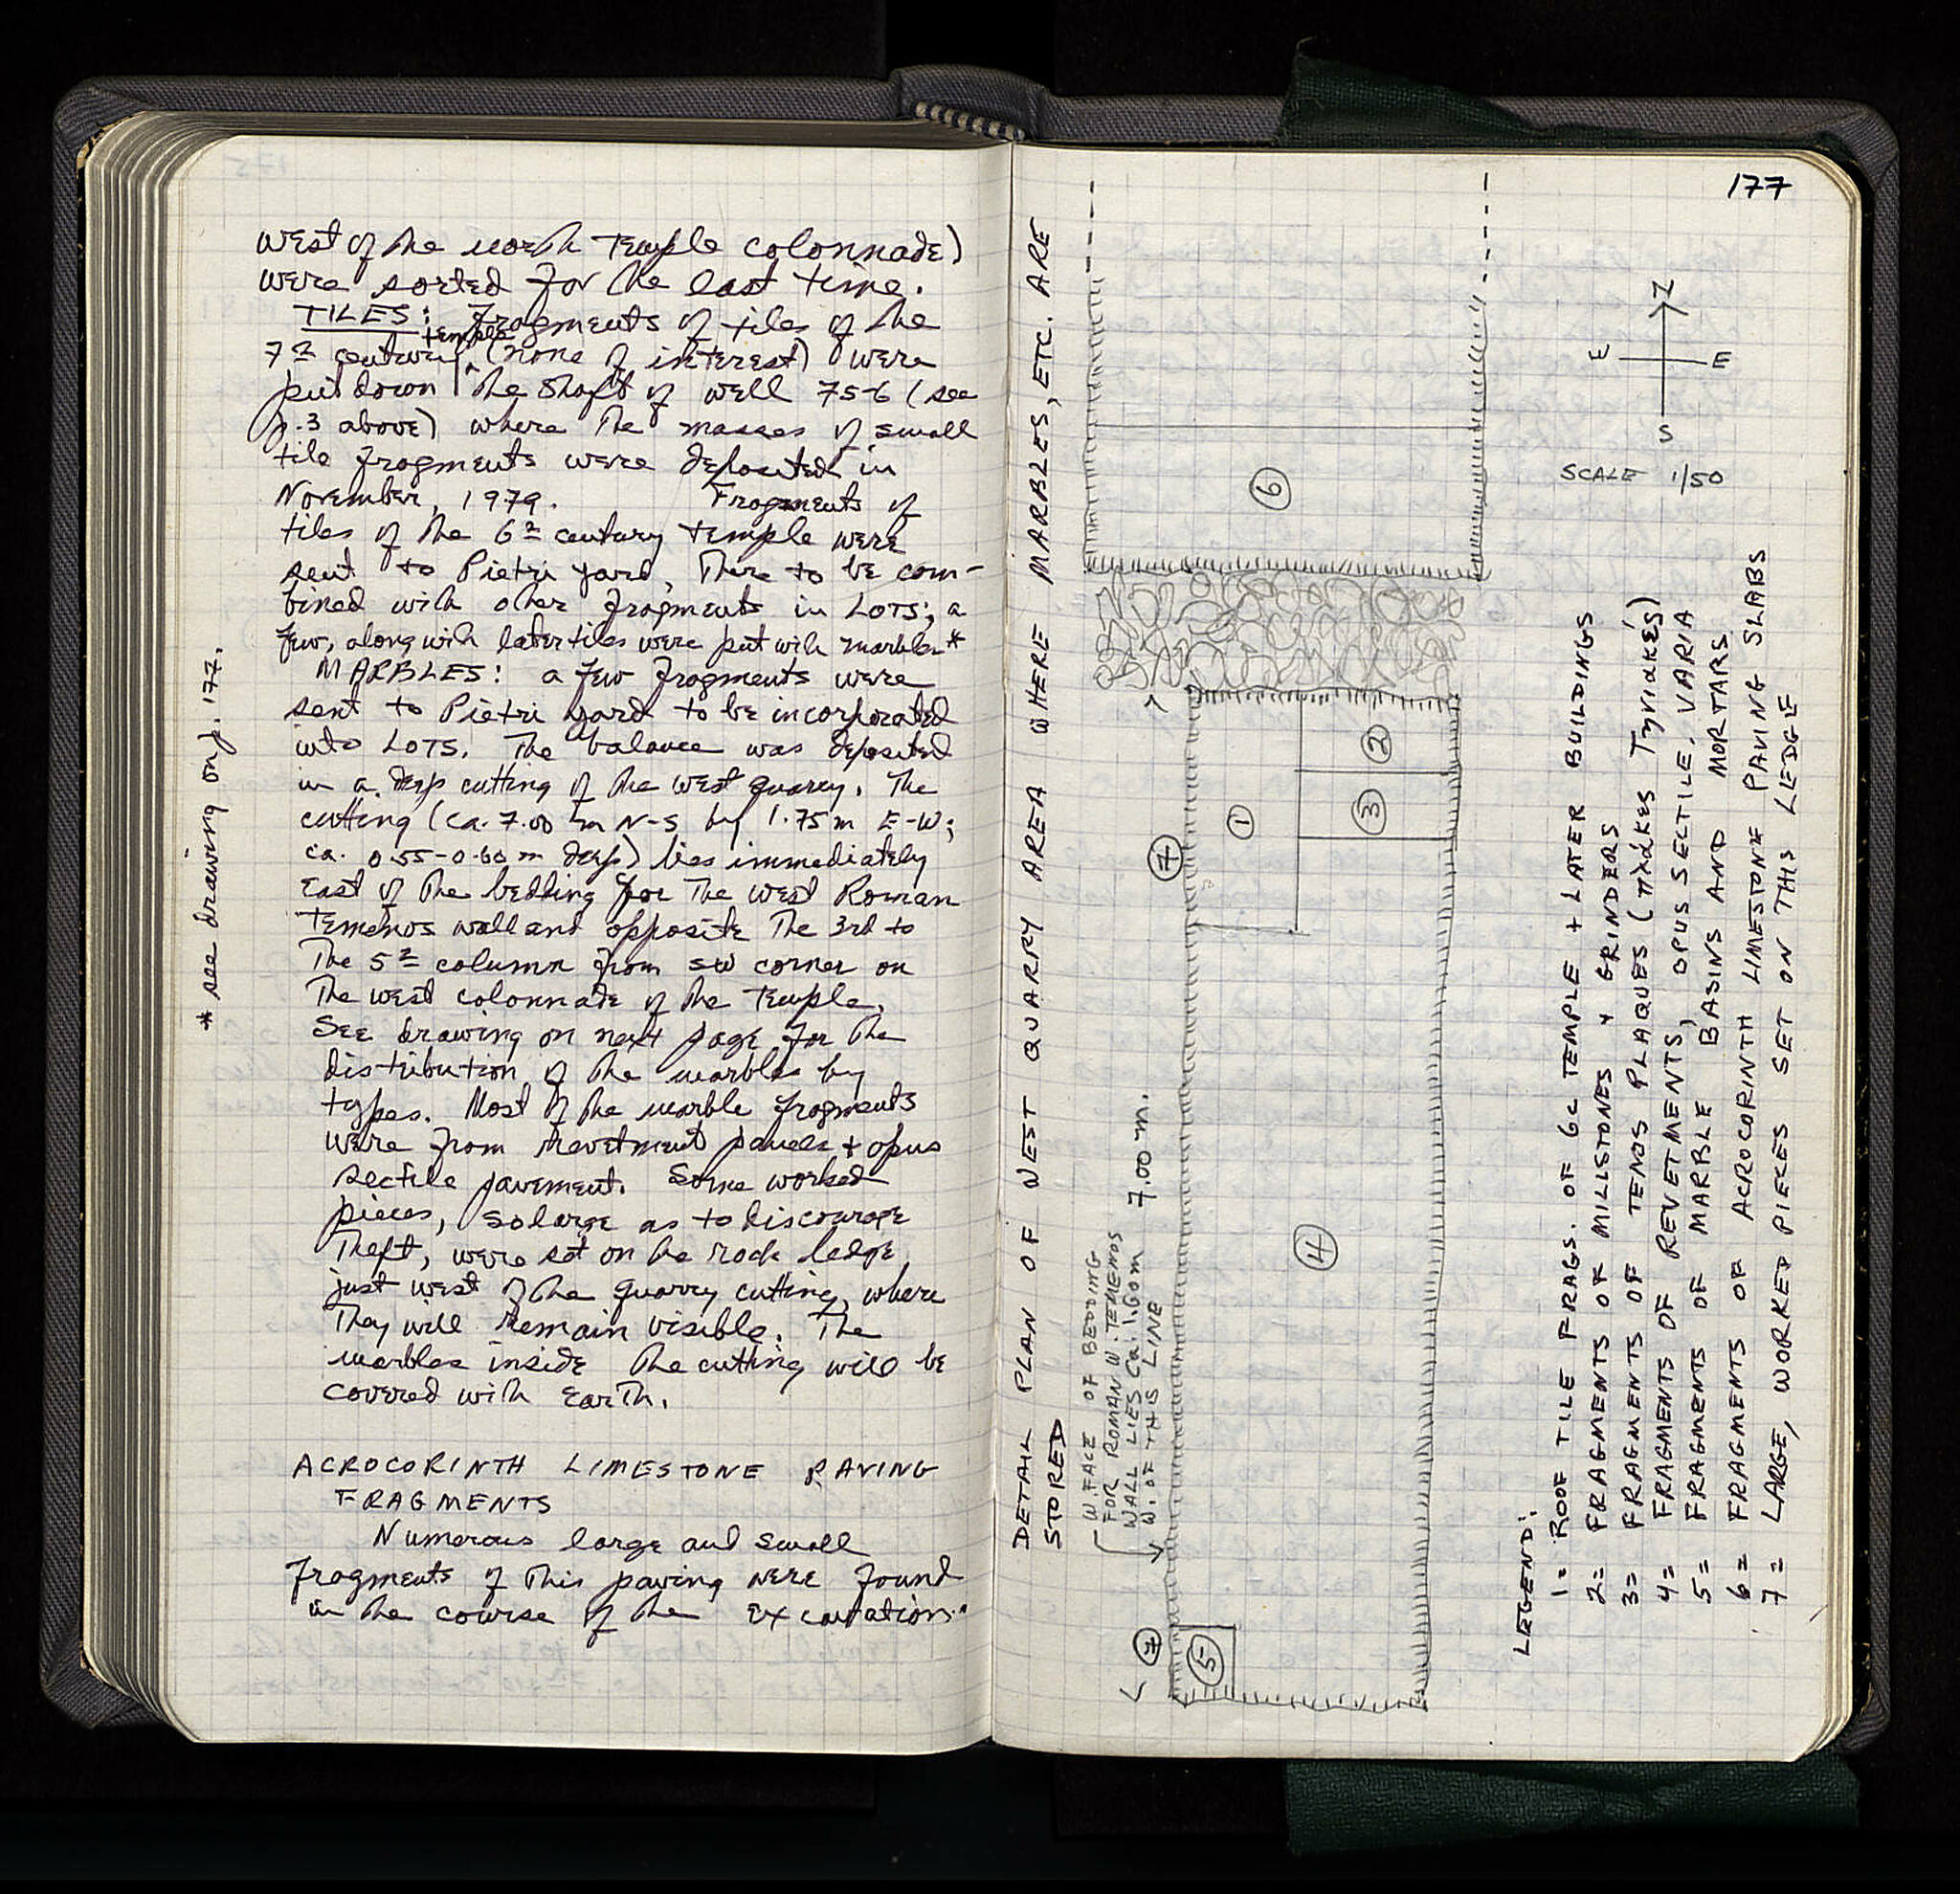 west of the north temple colonnade)
were sorted for the last time.
TILES: Fragments of tiles of the
7th century temple (none of interest) were
put down the shaft of well 75-6 (see
p. 3 above) where the masses of small
tile fragments were deposited in
November, 1979. Fragments of
tiles of the 6th century temple were
sent to Pietri yard, there to be com-
bined with other fragments in LOTS; a
few, along with later tiles were put with marbles*
MARBLES: a few fragments were
sent to Pietri yard to be incorporated
into LOTS. The balance was deposited
in a deep cutting of the west quarry. The
cutting (ca. 7.00 m N-S by 1.75 m E-W;
ca. 0.55-0.60 m deep) lies immediately
East of the bedding for the West Roman
Temenos wall and opposite the 3rd to
the 5th column from SW corner on
the west colonnade of the Temple.
See drawing on next page for the
distribution of the marbles by
types. Most of the marble fragments
were from revetment panels + opus
sectile pavement. Some worked
pieces, so large as to discourage
theft, were set on the rock ledge
just west of the quarry cutting, where
They will remain visible. The
marbles inside the cutting will be
covered with Earth.
* see drawing on p. 177.
ACROCORINTH LIMESTONE PAVING
FRAGMENTS
Numerous large and small
fragments of this paving were found
in the course of the excavation.
177
DETAIL PLAN OF WEST QUARRY AREA WHERE MARBLES, ETC. ARE
STORED
W. FACE OF BEDDING
FOR ROMAN W. TEMENOS
WALL LIES Ca. 1.60m
W. OF THIS LINE
7.00 m.
6
2
3
1
7
4
7
5
N
E
E
S
SCALE 1/50
LEGEND:
1= ROOF TILE FRAGS. OF 6C TEMPLE + LATER BUILDINGS
2= FRAGMENTS OF MILLSTONES + GRINDERS
3= FRAGMENTS OF TENOS PLAQUES (πλάκες Τηνιακές)
4= FRAGMENTS OF REVETMENTS, OPUS SECTILE, VARIA
5= FRAGMENTS OF MARBLE BASINS AND MORTARS
6= FRAGMENTS OF ACROCORINTH LIMESTONE PAVING SLABS
7= LARGE, WORKED PIECES SET ON THIS LEDGE